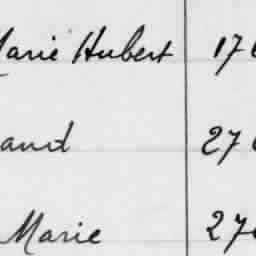 Marie Hubert 176
and 276
Marie 276